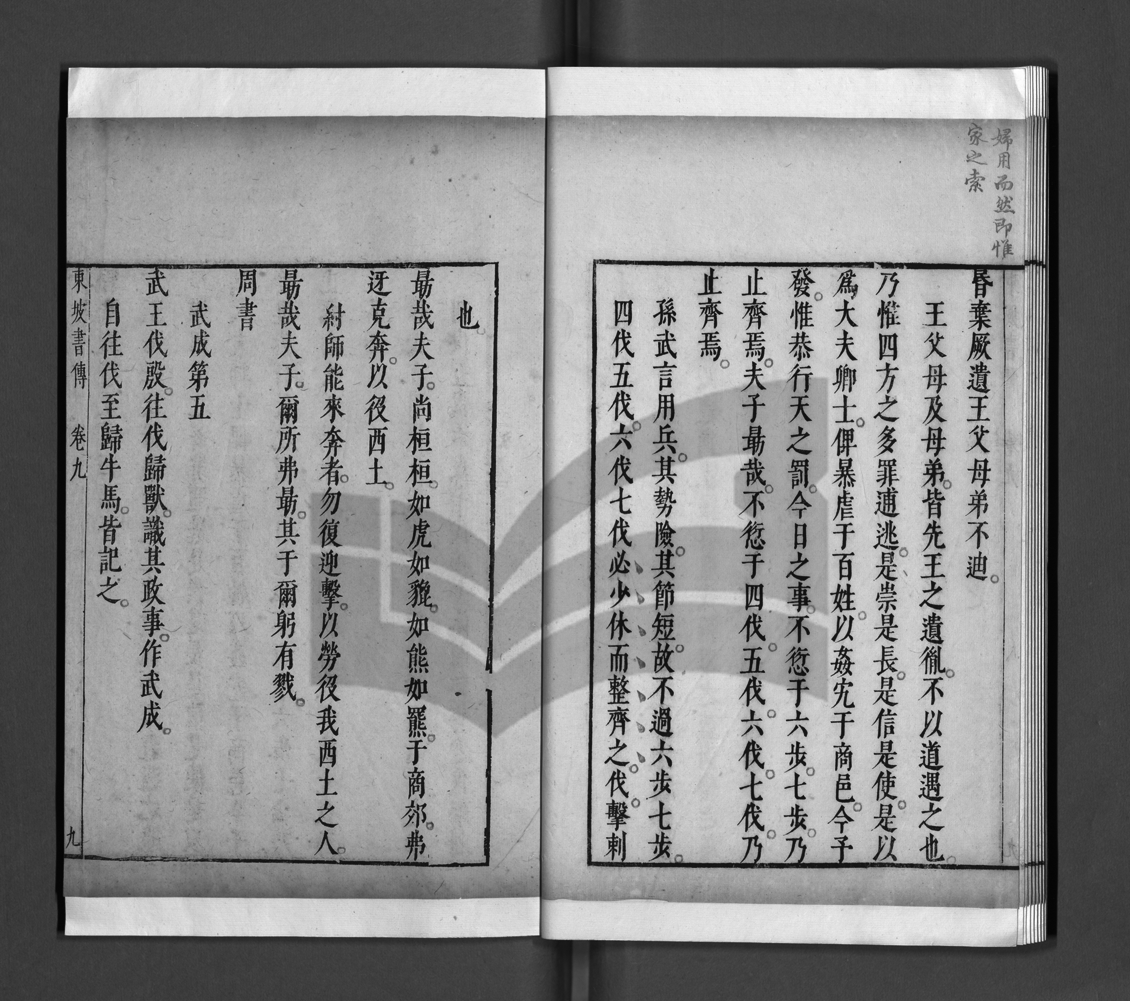 婦用而然即惟
家之索
昏棄厥遺王父母弟不迪。
王父母及母弟。皆先王之遺胤。不以道遇之也。
乃惟四方之多罪逋逃。是崇是長。是信是使。是以
爲大夫卿士。俾暴虐于百姓。以姦宄于商邑。今予
發。惟恭行天之罰。今日之事。不愆于六步。七步。乃
止齊焉。夫子勗哉。不愆于四伐。五伐。六伐。七伐。乃
止齊焉。
孫武言用兵。其勢險。其節短。故不過六步七步。
四伐五伐。六伐七伐必少休而整齊之。伐。擊刺
也。
勗哉夫子。尚桓桓。如虎如貔。如熊如羆。于商郊。弗
迓克奔。以役西土。
紂師能來奔者。勿復迎擊。以勞役我西土之人。
勗哉夫子。爾所弗勗。其于爾躬有戮。
周書
武成第五
武王伐殷。往伐歸獸。識其政事。作武成。
自往伐至歸牛馬。皆記之。
東坡書傳 卷九 九